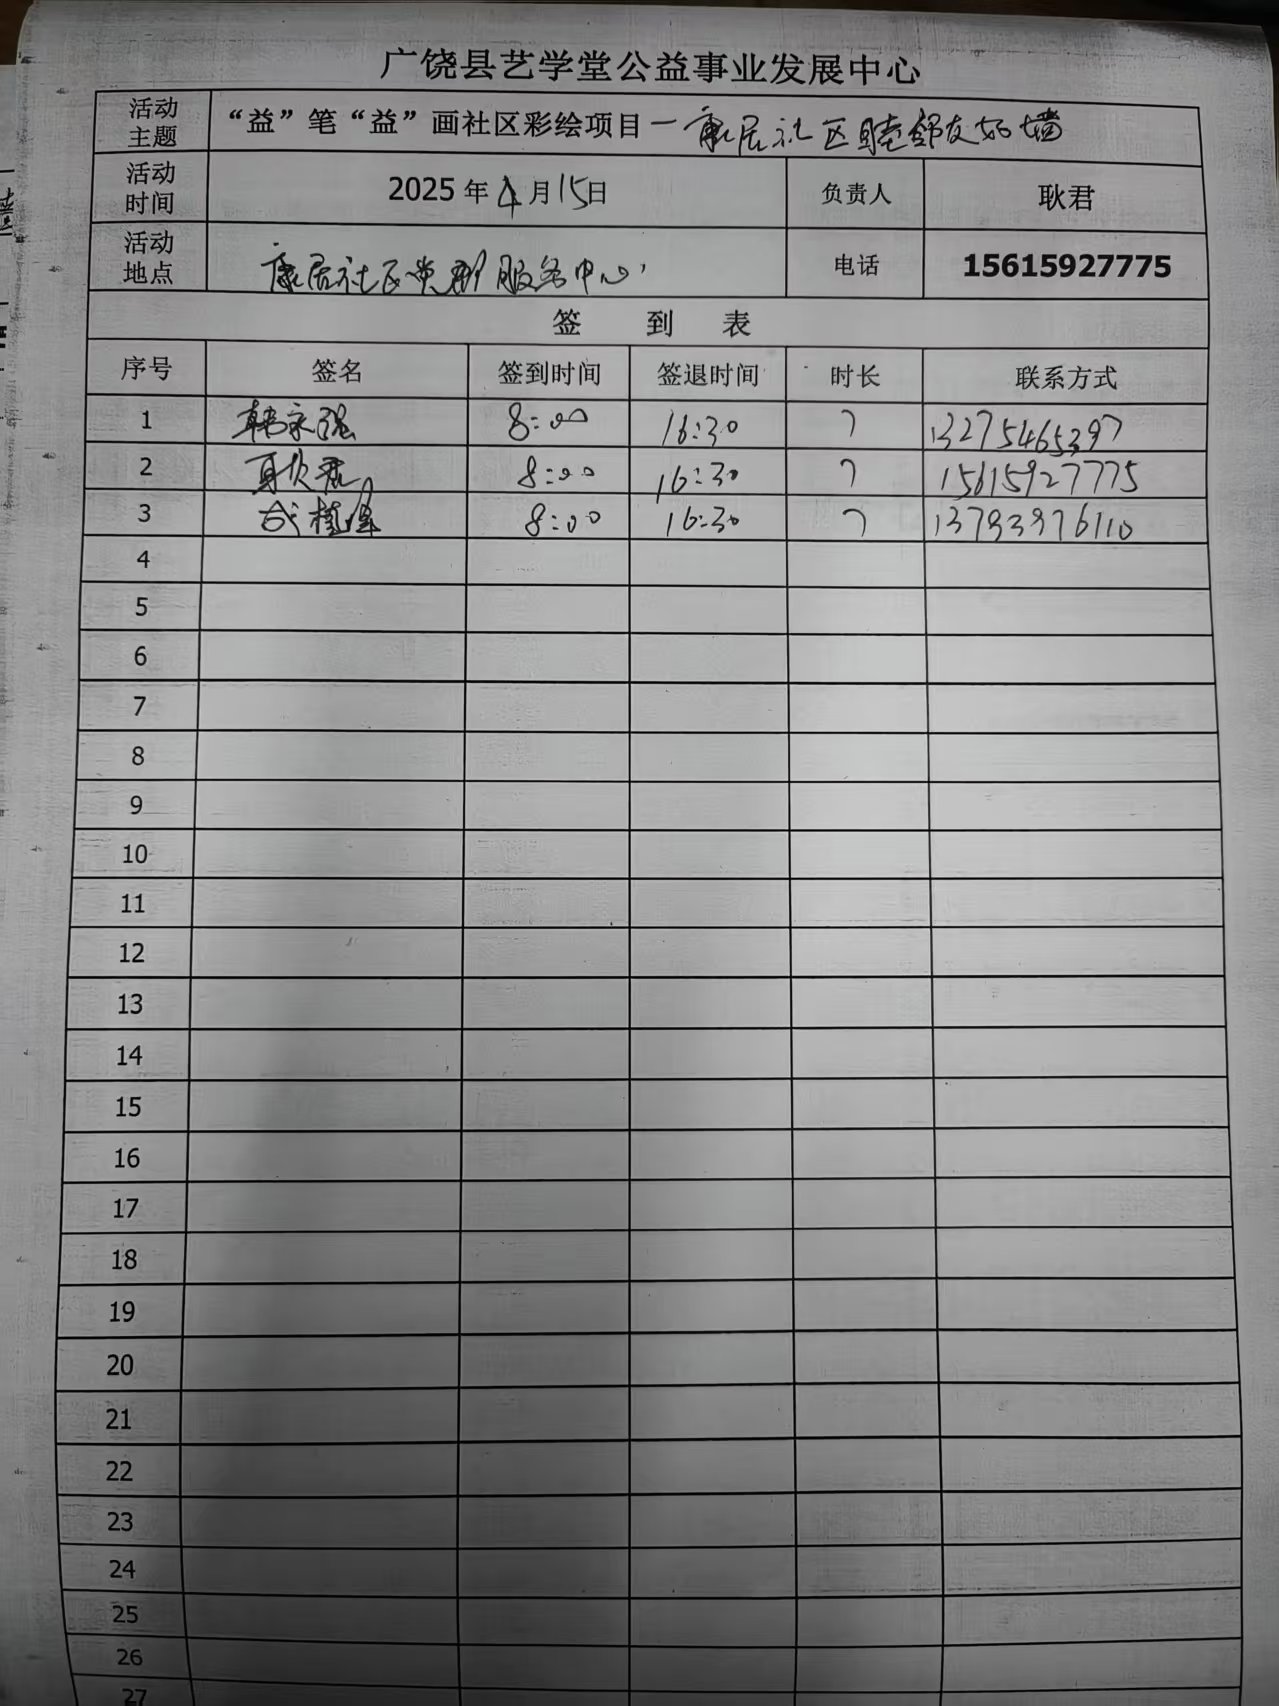 广饶县艺学堂公益事业发展中心
活动主题 “益”笔“益”画社区彩绘项目—康居社区睦邻友好墙
活动时间 2025年4月15日 负责人 耿君
活动地点 康居社区党群服务中心 电话 15615927775
签 到 表
序号 签名 签到时间 签退时间 时长 联系方式
1 韩永强 8:00 16:30 7 13275465397
2 8:00 16:30 7 15615927775
3 8:00 16:30 7 13793976110
4
5
6
7
8
9
10
11
12
13
14
15
16
17
18
19
20
21
22
23
24
25
26
27